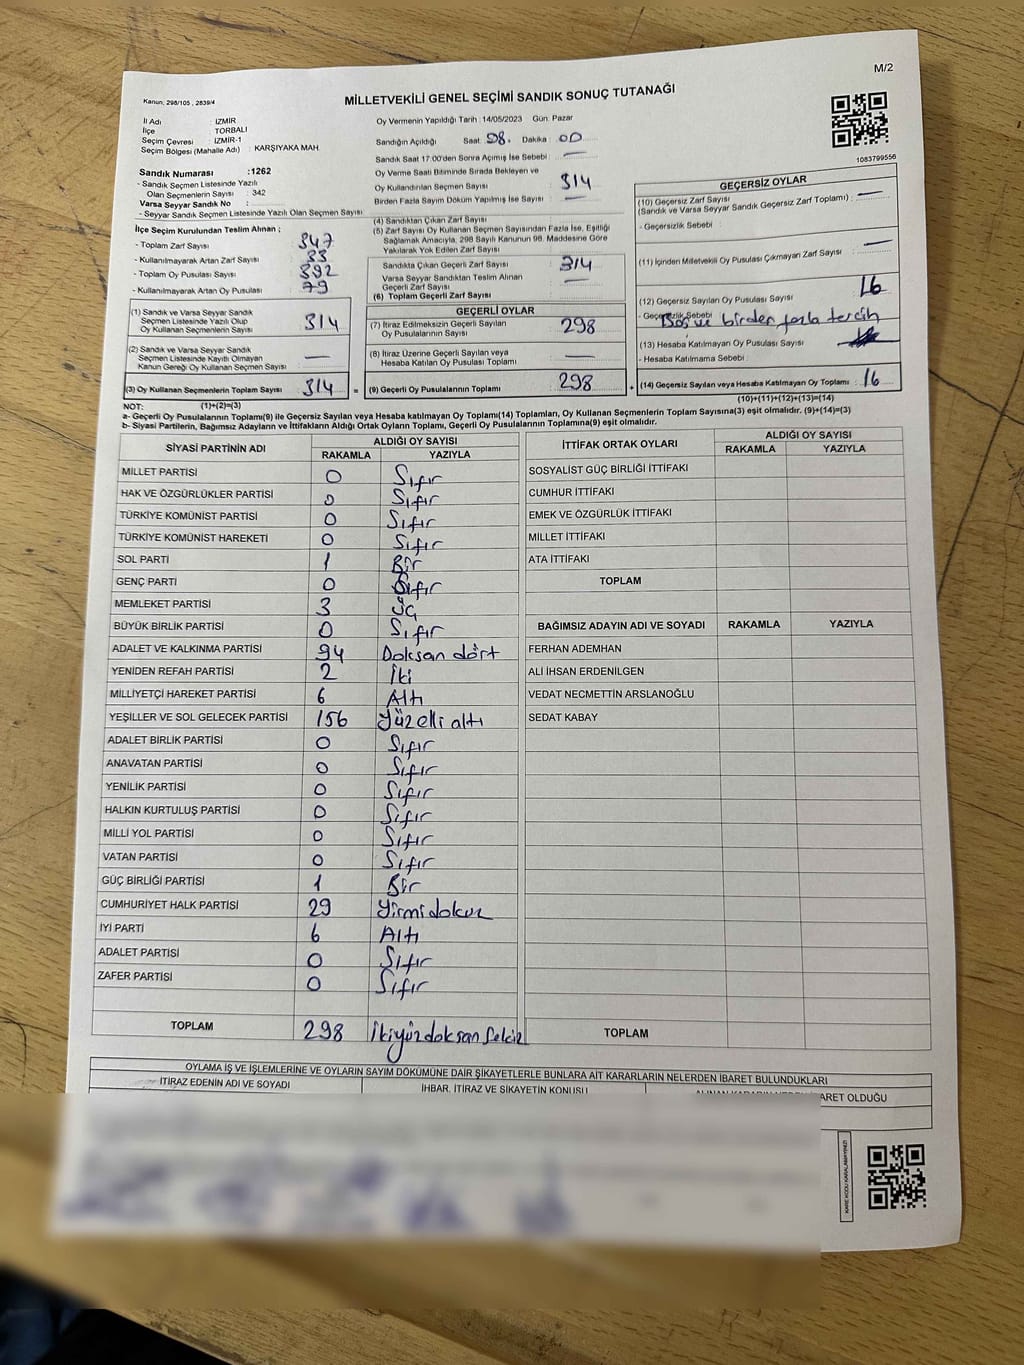 M/2
Kanun: 298/105 , 2839/4
MİLLETVEKİLİ GENEL SEÇİMİ SANDIK SONUÇ TUTANAĞI
İl Adı : İZMİR
İlçe : TORBALI
Seçim Çevresi : İZMİR-1
Seçim Bölgesi (Mahalle Adı) : KARŞIYAKA MAH.
Sandık Numarası :1262
- Sandık Seçmen Listesinde Yazılı
Olan Seçmenlerin Sayısı : 342
Varsa Seyyar Sandık No :
- Seyyar Sandık Seçmen Listesinde Yazılı Olan Seçmen Sayısı
İlçe Seçim Kurulundan Teslim Alınan ;
- Toplam Zarf Sayısı : 347
- Kullanılmayarak Artan Zarf Sayısı : 33
- Toplam Oy Pusulası Sayısı : 392
- Kullanılmayarak Artan Oy Pusulası : 79
(1) Sandık ve Varsa Seyyar Sandık
Seçmen Listesinde Yazılı Olup
Oy Kullanan Seçmenlerin Sayısı 314
(2) Sandık ve Varsa Seyyar Sandık
Seçmen Listesinde Kayıtlı Olmayan
Kanun Gereği Oy Kullanan Seçmen Sayısı —
(3) Oy Kullanan Seçmenlerin Toplam Sayısı 314 =
(1)+(2)=(3)
Oy Vermenin Yapıldığı Tarih : 14/05/2023 Gün: Pazar
Sandığın Açıldığı Saat: 08. Dakika : 00
Sandık Saat 17:00'den Sonra Açılmış İse Sebebi : —
Oy Verme Saati Bitiminde Sırada Bekleyen ve
Oy Kullandırılan Seçmen Sayısı : 314
Birden Fazla Sayım Döküm Yapılmış İse Sayısı : —
(4) Sandıktan Çıkan Zarf Sayısı
(5) Zarf Sayısı Oy Kullanan Seçmen Sayısından Fazla İse, Eşitliği
Sağlamak Amacıyla, 298 Sayılı Kanunun 98. Maddesine Göre
Yakılarak Yok Edilen Zarf Sayısı
Sandıkta Çıkan Geçerli Zarf Sayısı : 314
Varsa Seyyar Sandıktan Teslim Alınan
Geçerli Zarf Sayısı : —
(6) Toplam Geçerli Zarf Sayısı
GEÇERLİ OYLAR
(7) İtiraz Edilmeksizin Geçerli Sayılan
Oy Pusulalarının Sayısı : 298
(8) İtiraz Üzerine Geçerli Sayılan veya
Hesaba Katılan Oy Pusulası Toplamı : —
(9) Geçerli Oy Pusulalarının Toplamı : 298 +
1083799556
GEÇERSİZ OYLAR
(10) Geçersiz Zarf Sayısı : —
(Sandık ve Varsa Seyyar Sandık Geçersiz Zarf Toplamı)
- Geçersizlik Sebebi :
(11) İçinden Milletvekili Oy Pusulası Çıkmayan Zarf Sayısı : —
(12) Geçersiz Sayılan Oy Pusulası Sayısı : 16
- Geçersizlik Sebebi : Boş ve birden fazla tercih
(13) Hesaba Katılmayan Oy Pusulası Sayısı :
- Hesaba Katılmama Sebebi :
(14) Geçersiz Sayılan veya Hesaba Katılmayan Oy Toplamı : 16
(10)+(11)+(12)+(13)=(14)
NOT:
a- Geçerli Oy Pusulalarının Toplamı(9) ile Geçersiz Sayılan veya Hesaba katılmayan Oy Toplamı(14) Toplamları, Oy Kullanan Seçmenlerin Toplam Sayısına(3) eşit olmalıdır. (9)+(14)=(3)
b- Siyasi Partilerin, Bağımsız Adayların ve İttifakların Aldığı Ortak Oyların Toplamı, Geçerli Oy Pusulalarının Toplamına(9) eşit olmalıdır.
SİYASİ PARTİNİN ADI ALDIĞI OY SAYISI
RAKAMLA YAZIYLA
MİLLET PARTİSİ 0 Sıfır
HAK VE ÖZGÜRLÜKLER PARTİSİ 0 Sıfır
TÜRKİYE KOMÜNİST PARTİSİ 0 Sıfır
TÜRKİYE KOMÜNİST HAREKETİ 0 Sıfır
SOL PARTİ 1 Bir
GENÇ PARTİ 0 Sıfır
MEMLEKET PARTİSİ 3 üç
BÜYÜK BİRLİK PARTİSİ 0 Sıfır
ADALET VE KALKINMA PARTİSİ 94 Doksan dört
YENİDEN REFAH PARTİSİ 2 İki
MİLLİYETÇİ HAREKET PARTİSİ 6 Altı
YEŞİLLER VE SOL GELECEK PARTİSİ 156 Yüzelli altı
ADALET BİRLİK PARTİSİ 0 Sıfır
ANAVATAN PARTİSİ 0 Sıfır
YENİLİK PARTİSİ 0 Sıfır
HALKIN KURTULUŞ PARTİSİ 0 Sıfır
MİLLİ YOL PARTİSİ 0 Sıfır
VATAN PARTİSİ 0 Sıfır
GÜÇ BİRLİĞİ PARTİSİ 1 Bir
CUMHURİYET HALK PARTİSİ 29 Yirmidokuz
İYİ PARTİ 6 Altı
ADALET PARTİSİ 0 Sıfır
ZAFER PARTİSİ 0 Sıfır
TOPLAM 298 İkiyüzdoksan Sekiz
İTTİFAK ORTAK OYLARI ALDIĞI OY SAYISI
RAKAMLA YAZIYLA
SOSYALİST GÜÇ BİRLİĞİ İTTİFAKI
CUMHUR İTTİFAKI
EMEK VE ÖZGÜRLÜK İTTİFAKI
MİLLET İTTİFAKI
ATA İTTİFAKI
TOPLAM
BAĞIMSIZ ADAYIN ADI VE SOYADI RAKAMLA YAZIYLA
FERHAN ADEMHAN
ALİ İHSAN ERDENİLGEN
VEDAT NECMETTİN ARSLANOĞLU
SEDAT KABAY
TOPLAM
OYLAMA İŞ VE İŞLEMLERİNE VE OYLARIN SAYIM DÖKÜMÜNE DAİR ŞİKAYETLERLE BUNLARA AİT KARARLARIN NELERDEN İBARET BULUNDUKLARI
İTİRAZ EDENİN ADI VE SOYADI İHBAR, İTİRAZ VE ŞİKAYETİN KONUSU ALINAN KARARIN NEDEN İBARET OLDUĞU